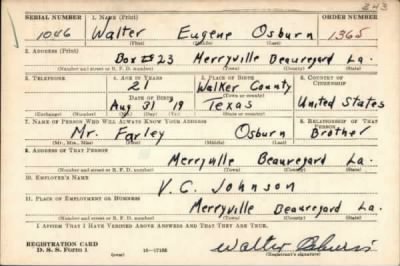 243
SERIAL NUMBER 1. NAME (Print) ORDER NUMBER
1046 Walter Eugene Osburn 1365
(First) (Middle) (Last)
2. ADDRESS (Print)
Box 23 Merryville Beauregard La.
(Number and street or R. F. D. number) (Town) (County) (State)
3. TELEPHONE 4. AGE IN YEARS 5. PLACE OF BIRTH 6. COUNTRY OF CITIZENSHIP
21 Walker County
DATE OF BIRTH (Town or county)
Aug 31 19 Texas United States
(Mo.) (Day) (Yr.) (State or country)
7. NAME OF PERSON WHO WILL ALWAYS KNOW YOUR ADDRESS 8. RELATIONSHIP OF THAT PERSON
Mr. Farley Osburn Brother
(Mr., Mrs., Miss) (First) (Middle) (Last)
9. ADDRESS OF THAT PERSON
Merryville Beauregard La.
(Number and street or R. F. D. number) (Town) (County) (State)
10. EMPLOYER'S NAME
V. C. Johnson
11. PLACE OF EMPLOYMENT OR BUSINESS
Merryville Beauregard La.
(Number and street or R. F. D. number) (Town) (County) (State)
I AFFIRM THAT I HAVE VERIFIED ABOVE ANSWERS AND THAT THEY ARE TRUE.
REGISTRATION CARD
D. S. S. Form 1 (over) 16-17105 Walter Osburn
(Registrant's signature)